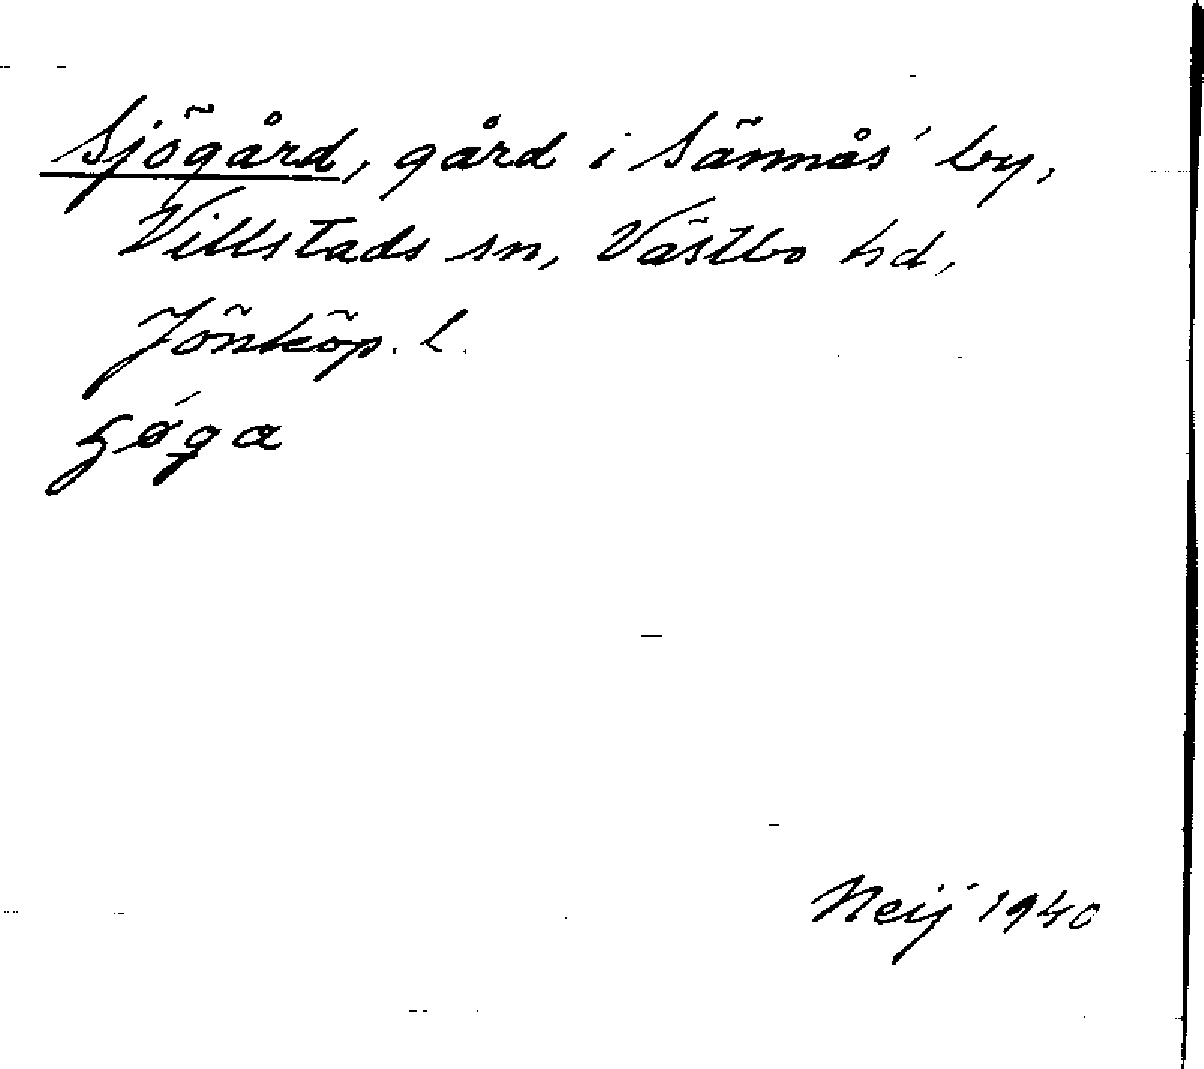 Sjögård, gård i Sännås by,
Villstads sn, Västbo hd,
Jönköp. l.
Neij 1940